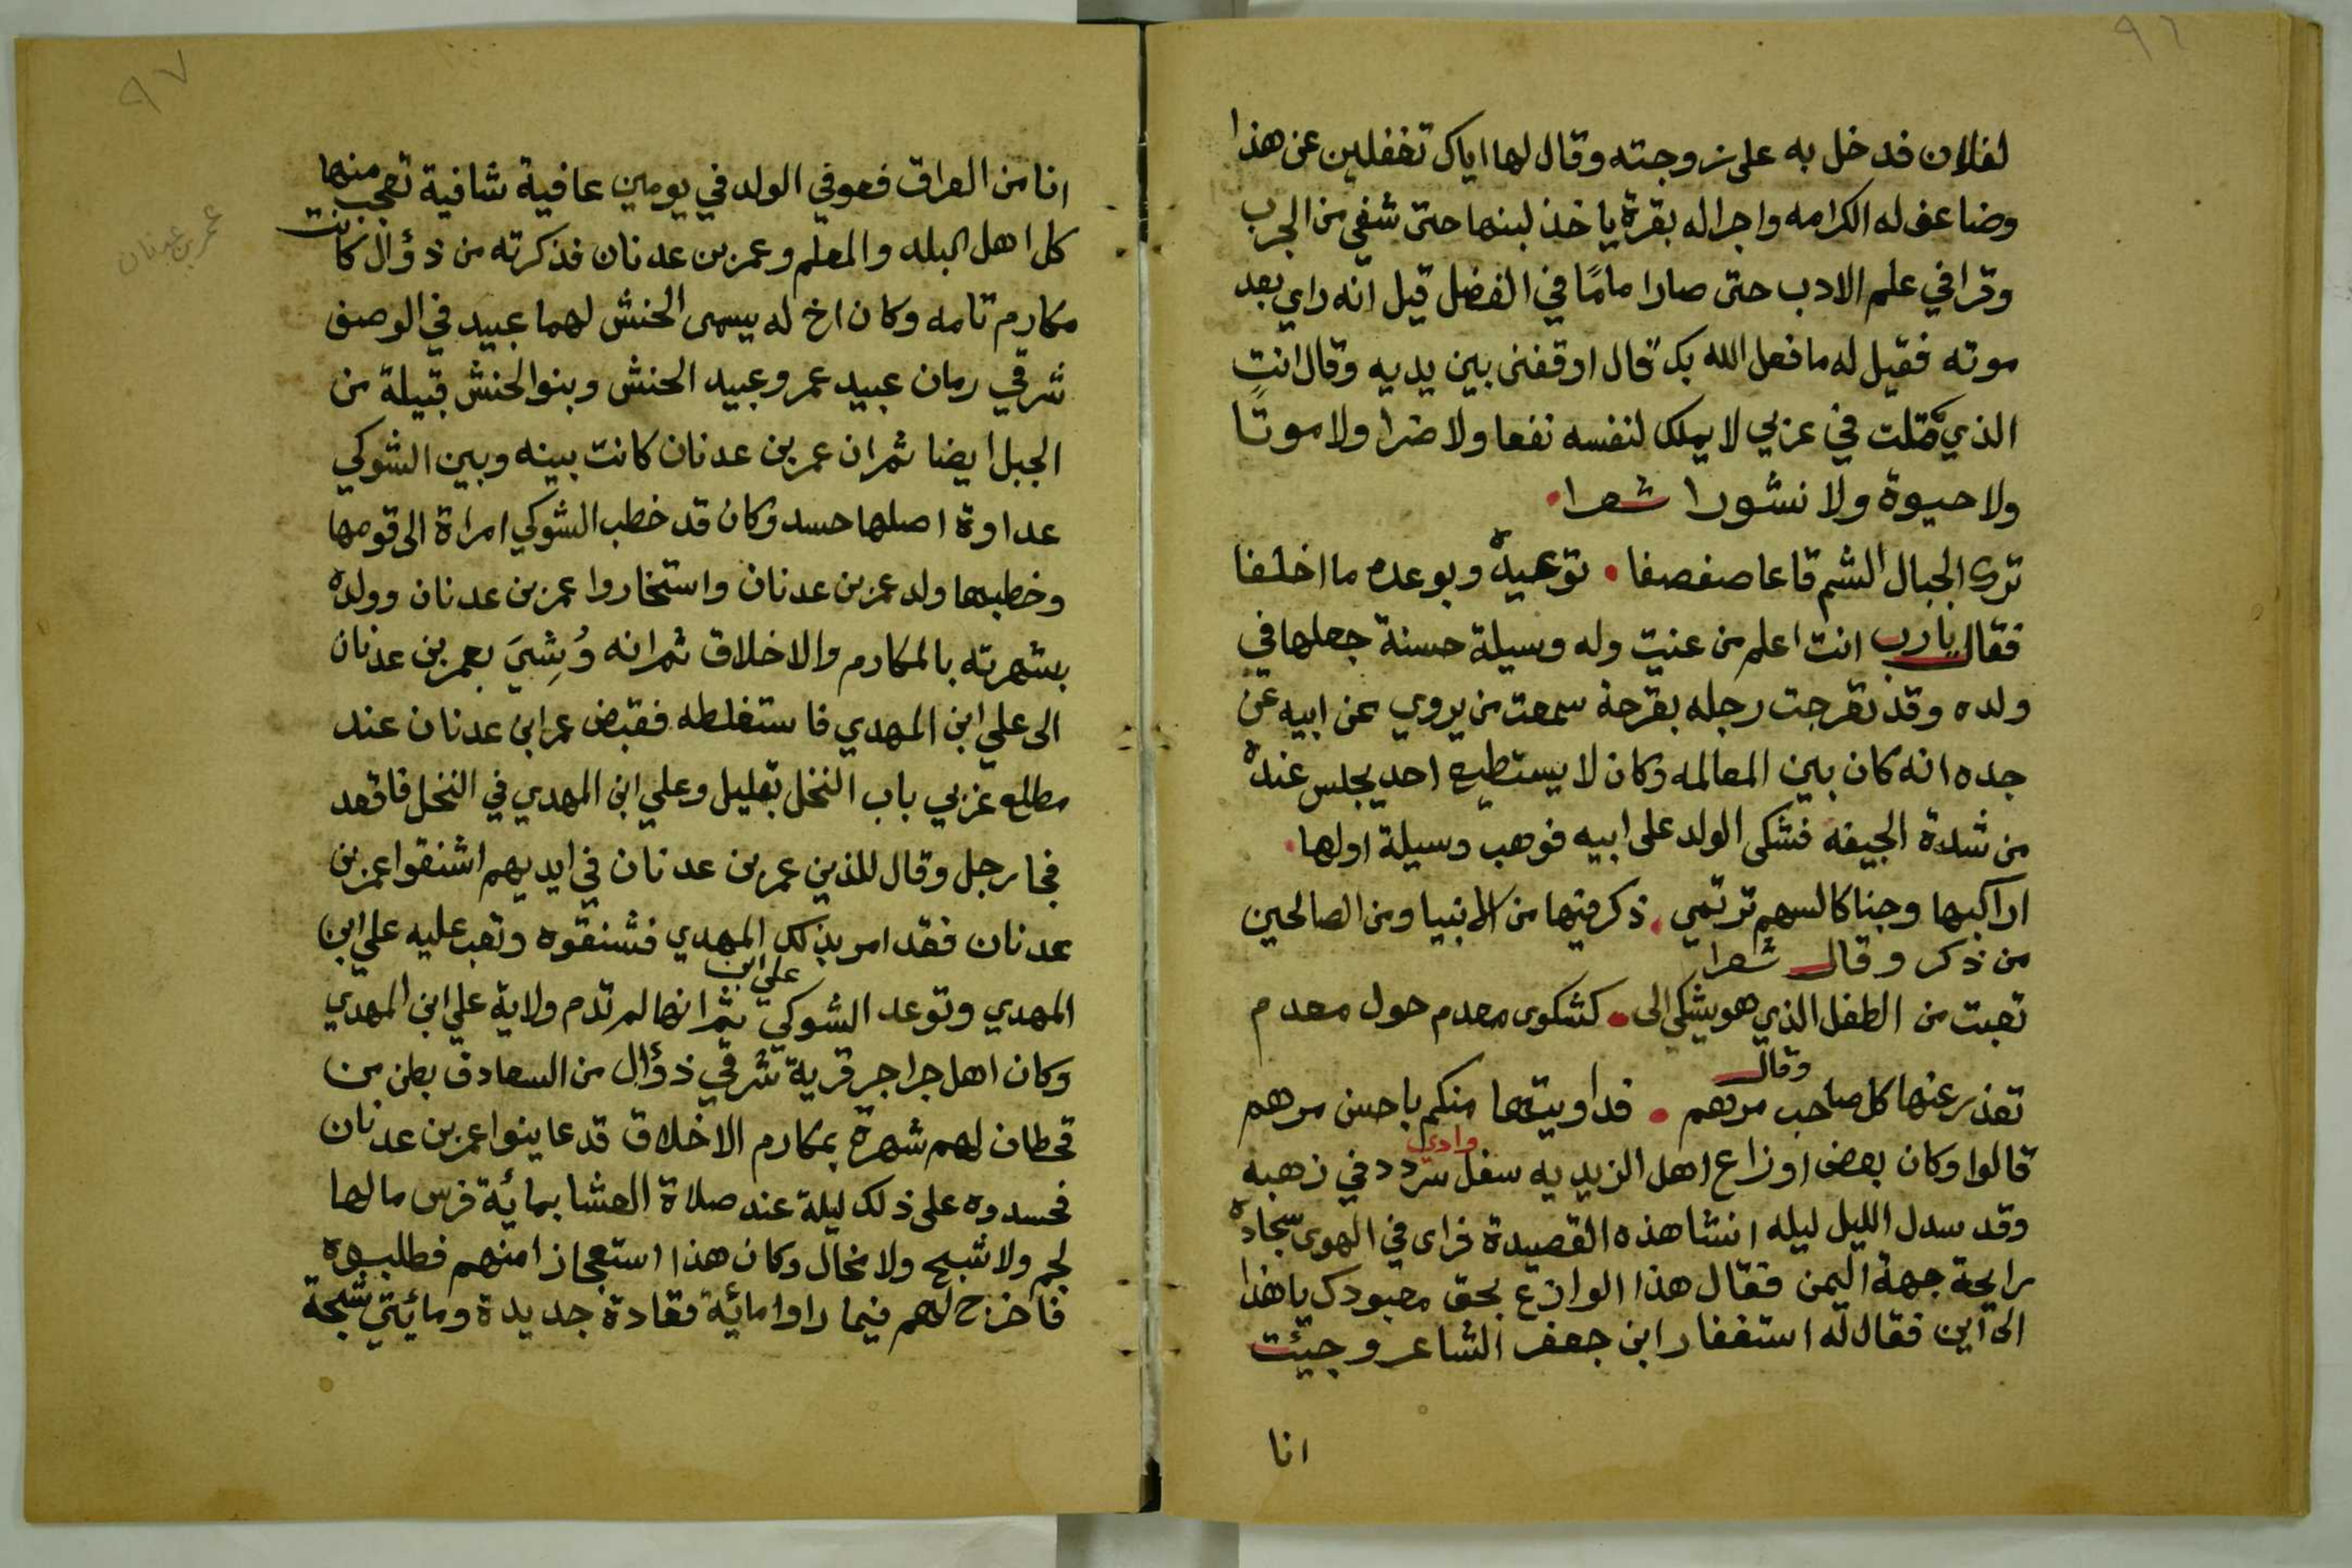 ٩٦
لفلان فدخل به على زوجته وقال لها اياك تغفلين عن هذا
وضاعف له الكرامه واجرا له بقرة ياخذ لبنها حتى شفي من الجرب
وقرا في علم الادب حتى صار امامًا في الفضل قيل انه راي بعد
موته فقيل له ما فعل الله بك قال اوقفنى بين يديه وقال انت
الذي قلت في عربي لا يملك لنفسه نفعا ولا ضرا ولا موتًا
ولا حيوة ولا نشورا شعرا
ترى الجبال الشم قاعا صفصفا • توعيده وبوعده ما اخلفا
فقال يارب انت اعلم من عنيت وله وسيلة حسنة جعلها في
ولده وقد تقرحت رجله بقرحة سمعت من يروي عن ابيه عن
جده انه كان بين المعالمه وكان لا يستطيع احد يجلس عنده
من شدة الجيفه فشكى الولد على ابيه فوهب وسيلة اولها
اراكبها وجنا كالسهم ترتمي • ذكر فيها من الانبيا ومن الصالحين
من ذكر وقال شعرا
تعبت من الطفل الذي هو يشكي الى • كشكوى معدم حول معدم
وقال
تعذر عنها كل صاحب مرهم • فداويتها منكم باحسن مرهم
قالوا وكان بعض اوزاع اهل الزيديه سفل وادي سردد في زهبه
وقد سدل الليل ليله انشا هذه القصيدة فراى في الهوى سجاده
رايحة جهة اليمن فقال هذا الوازع بحق معبودك يا هذا
الى اين فقال له استغفار ابن جعفر الشاعر وجيئت
انا
٩٧
انا من العراق فعوفي الولد في يومين عافية شافية تعجب منها
كل اهل البلد والمعلم وعمر بن عدنان فذكرته من ذؤال كانت
عمر بن عدنان
مكارم تامه وكان اخ له يسمى الحنش لهما عبيد في الوصف
شرقي رمان عبيد عمر وعبيد الحنش وبنو الحنش قبيلة من
الجبل ايضا ثم ان عمر بن عدنان كانت بينه وبين الشوكي
عداوة اصلها حسد وكان قد خطب الشوكي امراة الى قومها
وخطبها ولد عمر بن عدنان واستخاروا عمر بن عدنان وولده
بشهرته بالمكارم والاخلاق ثم انه وُشِيَ بعمر بن عدنان
الى علي ابن المهدي فاستغلطه فقبض عمر ابن عدنان عند
مطلع غربي باب النخل بقليل وعلي ابن المهدي في النخل فاقعد
فجا رجل وقال للذين عمر بن عدنان في ايديهم اشنقوا عمر بن
عدنان فقد امر بذلك علي ابن المهدي فشنقوه وتعب عليه علي ابن
المهدي وتوعد الشوكي ثم انها لم تدم ولاية علي ابن المهدي
وكان اهل جراجر قرية شرقي ذؤال من السعادف بطن من
قحطان لهم شهرة بمكارم الاخلاق قد عاينوا عمر بن عدنان
فحسدوه على ذلك ليلة عند صلاة العشا بمائة فرس مالها
لجم ولا شبح ولا مخال وكان هذا استعجازا منهم فطلبوه
فاخرج لهم فيما راوا مائة مقادة جديدة ومائتي شبحة